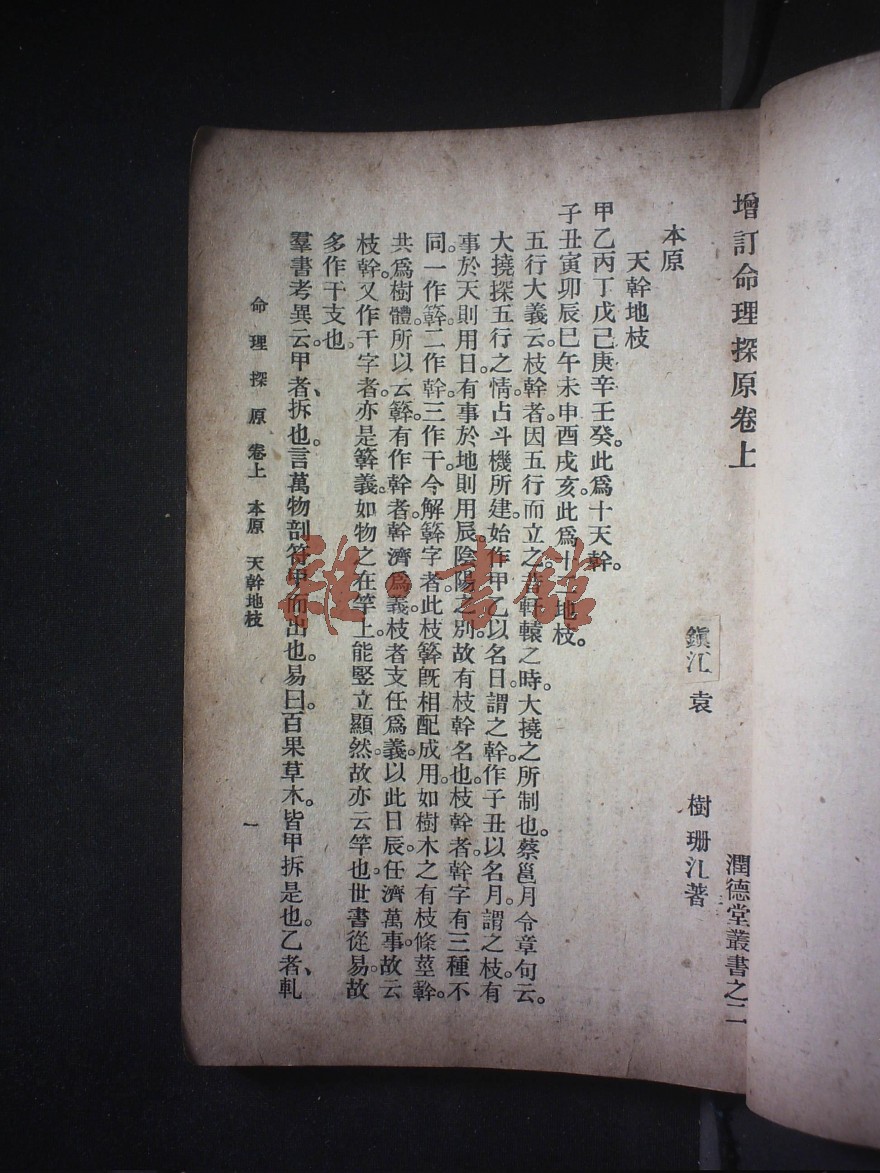 增訂命理探原卷上
潤德堂叢書之二
鎭江 袁 樹珊 著
本原
天幹地枝
甲乙丙丁戊己庚辛壬癸。此爲十天幹。
子丑寅卯辰巳午未申酉戌亥。此爲十二地枝。
五行大義云。枝幹者。因五行而立之。昔軒轅之時。大撓之所制也。蔡邕月令章句云。
大撓探五行之情。占斗機所建。始作甲乙以名日。謂之幹。作子丑以名月。謂之枝。有
事於天則用日。有事於地則用辰。陰陽之別。故有枝幹名也。枝幹者。幹字有三種不
同。一作簳。二作幹。三作干。今解簳字者。此枝簳旣相配成用。如樹木之有枝條莖幹。
共爲樹體。所以云簳。有作幹者。幹濟爲義。枝者支任爲義。以此日辰。任濟萬事。故云
枝幹。又作干字者。亦是簳義。如物之在竿上。能豎立顯然。故亦云竿也。世書從易。故
多作干支也。
羣書考異云。甲者、拆也。言萬物剖符甲而出也。易曰。百果草木。皆甲拆是也。乙者、軋
命理探原 卷上 本原 天幹地枝
一
雜·書館